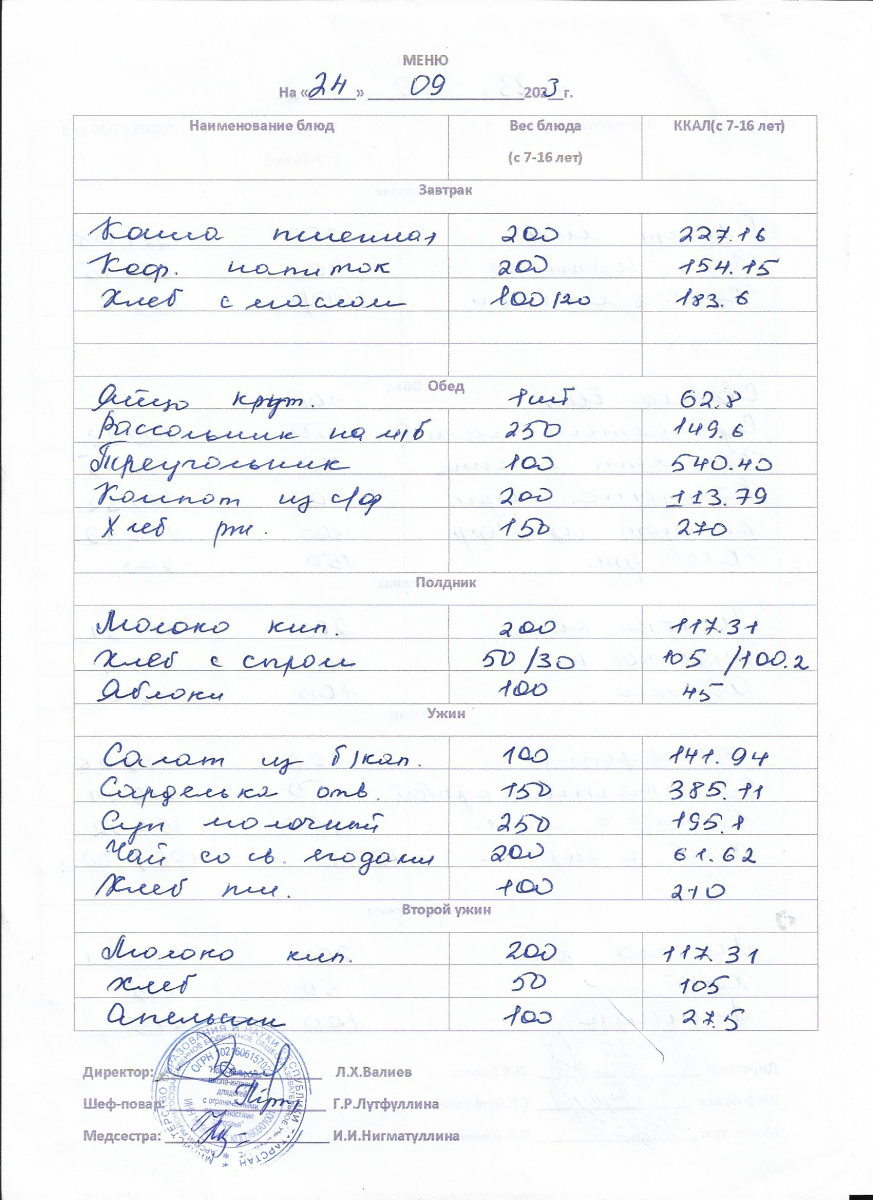 МЕНЮ
На «24» 09 2023 г.
Наименование блюд Вес блюда ККАЛ(с 7-16 лет)
(с 7-16 лет)
Завтрак
Каша пшенная 200 227.16
Коф. напиток 200 154.15
Хлеб с маслом 100/20 183.6
Обед
Яйцо крут. 1шт 62.8
Рассольник на м/б 250 149.6
Треугольник 100 540.40
Компот из с/ф 200 113.79
Хлеб рж. 150 270
Полдник
Молоко кип. 200 117.31
Хлеб с сыром 50/30 105/100.2
Яблоки 100 45
Ужин
Салат из б/кап. 100 141.94
Сарделька отв. 150 385.11
Суп молочный 250 195.1
Чай со св. ягодами 200 61.62
Хлеб пш. 100 210
Второй ужин
Молоко кип. 200 117.31
Хлеб 50 105
Апельсин 100 27.5
Директор: Л.Х.Валиев
Шеф-повар: Г.Р.Лутфуллина
Медсестра: И.И.Нигматуллина